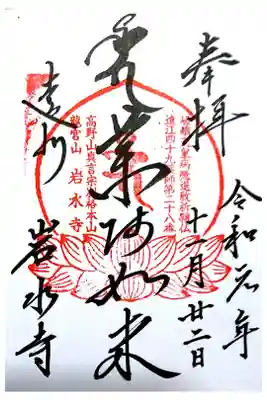 奉拝
令和元年
十一月廿二日
遠江四十九薬師第二十八番
薬師如来
高野山真言宗別格本山
龍宮山 岩水寺
遠州
岩水寺